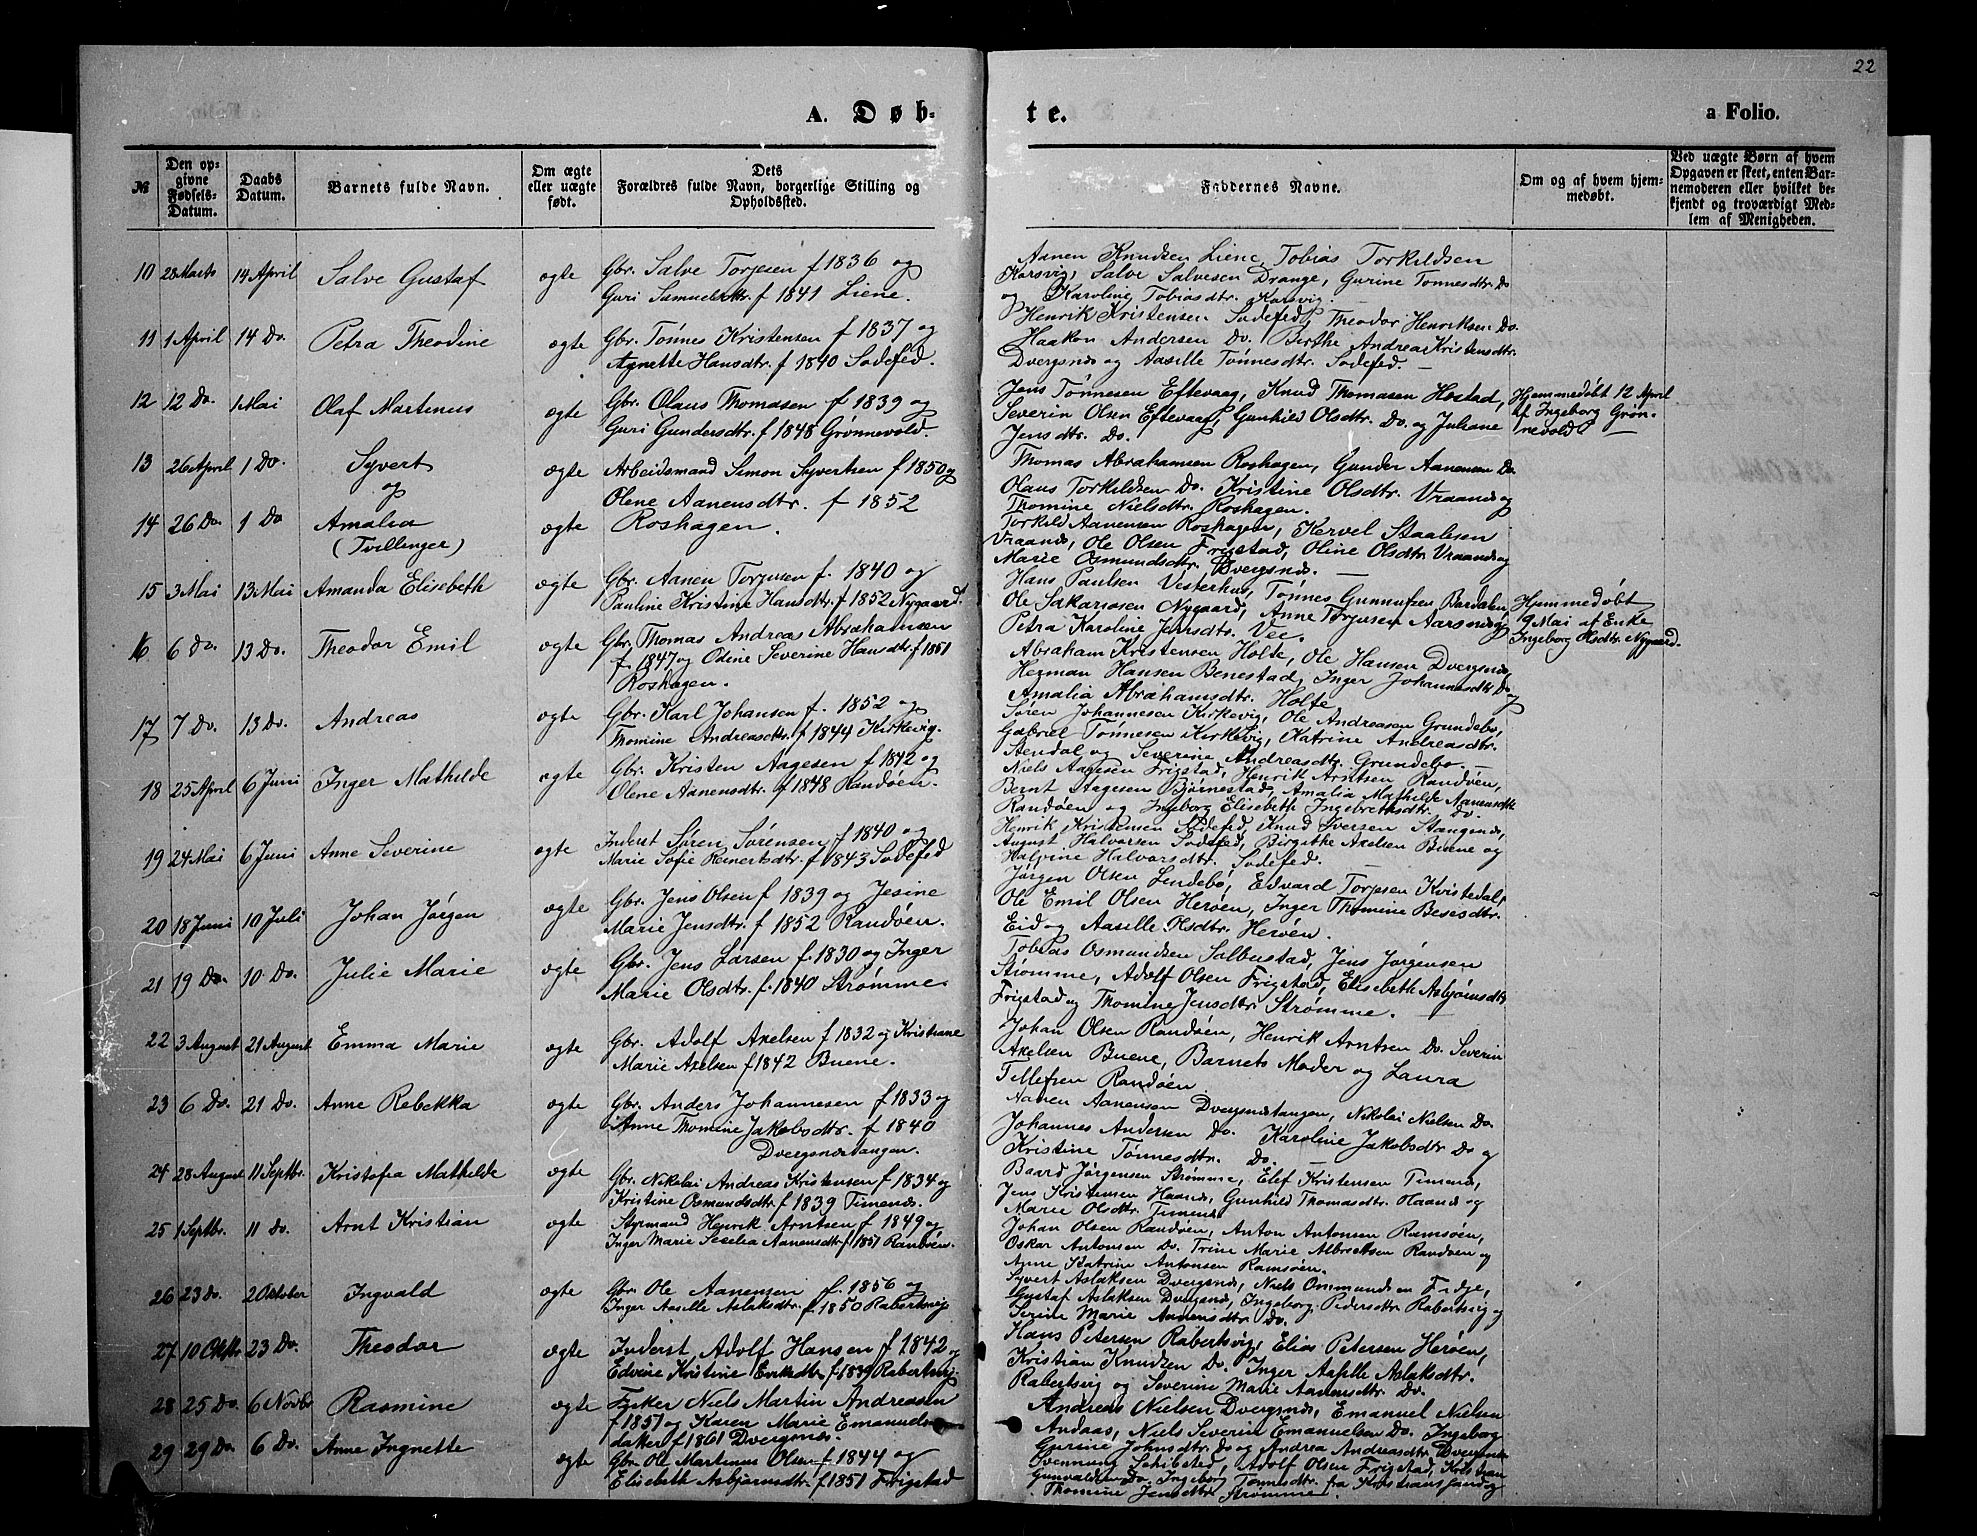 22
A. Døb-
te.
a Folio.
№
Den op-
givne
Fødsels-
Datum.
Daabs
Datum.
Barnets fulde Navn.
Om ægte
eller uægte
født.
Dets
Forældres fulde Navn, borgerlige Stilling og
Opholdssted.
Faddernes Navne.
Om og af hvem hjem-
medøbt.
Ved uægte Børn af hvem
Opgaven er skeet, enten Bar-
nemoderen eller hvilket be-
kjendt og troværdigt Med-
lem af Menigheden.
10 28 Marts 14 April Salve Gustaf ægte
Gbr. Salve Torjesen f 1836 og
Guri Samuelsdtr. f 1841 Liene.
Aanen Knudsen Liene, Tobias Torkildsen
Korsvig, Salve Salvesen Drange, Gurine Tønnesdtr. Do
og Karoline Tobiasdtr. Korsvig.
11 1 April 14 Do. Petra Theodine ægte
Gbr. Tønnes Kristensen f 1837 og
Agnette Hansdtr. f 1840 Sodefed.
Henrik Kristensen Sodefed, Theodor Henriksen Do.
Haakon Andersen Do. Birthe Andrea Kristensdtr.
Dvergsnes og Aasille Tønnesdtr. Sodefed.
12 12 Do. 1 Mai Olaf Martinus ægte
Gbr. Olaus Thomasen f 1839 og
Guri Gundersdtr. f 1848 Grønnevold.
Jens Tønnesen Eftevaag, Knud Thomasen Hostad,
Severin Olsen Eftevaag, Gunhild Olsdtr. Do. og Juliane
Jensdtr. Do.
Hjemmedøbt 12 April
af Ingeborg Grøn-
nevold
13 26 April 1 Do. Syvert ægte
og
14 26 Do. 1 Do Amalia ægte
(Tvillinger)
Arbeidsmand Simon Syvertsen f 1850 og
Olene Aanensdtr. f 1852
Roshagen.
Thomas Abrahamsen Roshagen, Gunder Aanensen Do.
Olaus Torkildsen Do. Kristine Olsdtr. Vraanes og
Thomine Nielsdtr. Roshagen.
Torkild Aanensen Roshagen, Kervel Staalesen
Vraanes, Ole Olsen Frigstad, Oline Olsdtr. Vraanes og
Marie Osmundsdtr. Dvergsnes.
15 3 Mai 13 Mai Amanda Elisebeth ægte
Gbr. Aanen Torjusen f. 1840 og
Pauline Kristine Hansdtr. f 1852 Nygaard.
Hans Paulsen Vesterhus, Tønnes Gunnufsen Bardalen,
Ole Sakariasen Nygaard, Anne Torjusen Aarsnes og
Petra Karoline Jensdtr. Vee.
Hjemmedøbt
9 Mai af Enke
Ingeborg Olsdtr. Nygaard.
16 6 Do. 13 Do. Theodor Emil ægte
Gbr. Thomas Andreas Abrahamsen
f. 1847 og Odine Severine Hansdtr. f 1851
Roshagen.
Abraham Kristensen Holte, Ole Hansen Dvergsnes,
Herman Hansen Benestad, Inger Johannesdtr. Do og
Amalia Abrahamsdtr. Holte
17 7 Do. 13 Do. Andreas ægte
Gbr. Karl Johansen f. 1852 og
Thomine Andreasdtr. f 1844 Kirkevig.
Søren Johannesen Kirkevig, Ole Andreasen Grundebø,
Gabriel Tønnesen Kirkevig, Katrine Andreasdtr.
Stendal og Severine Andreasdtr. Grundebø.
18 25 April 6 Juni Inger Mathilde ægte
Gbr. Kristen Aagesen f 1842 og
Olene Aanensdtr. f 1848 Randøen.
Niels Aagesen Frigstad, Henrik Arntsen Randøen,
Bernt Aagesen Bjørnestad, Amalia Mathilde Aanensdtr.
Randøen og Ingeborg Elisebeth Ingebrethsdtr. Do.
19 24 Mai 6 Juni Anne Severine ægte
Inderst Søren Sørensen f 1840 og
Marie Sofie Reinertsdtr. f 1843 Sodefed
Henrik Kristensen Sodefed, Knud Iversen Stangenes,
August Halvorsen Sodefed, Birgithe Axelsen Buene og
Halvine Halvorsdtr. Sodefed.
20 18 Juni 10 Juli Johan Jørgen ægte
Gbr. Jens Olsen f 1839 og Jesine
Marie Jensdtr. f 1852 Randøen.
Jørgen Olsen Lindebø, Edvard Torjesen Kvistedal,
Ole Emil Olsen Herøen, Inger Thomine Besesdtr.
Eid og Aasille Olsdtr. Herøen.
21 19 Do. 10 Do. Julie Marie ægte
Gbr. Jens Larsen f. 1830 og Inger
Marie Olsdtr. f. 1840 Strømme.
Tobias Osmundsen Salbustad, Jens Jørgensen
Strømme, Adolf Olsen Frigstad, Elisebeth Asbjørnsdtr.
Frigstad og Thomine Jensdtr. Strømme.
22 3 August 21 August Emma Marie ægte
Gbr. Adolf Axelsen f 1832 og Kristiane
Marie Axelsen f 1842 Buene.
Johan Olsen Randøen, Henrik Arntsen Do. Severin
Axelsen Buene, Barnets Moder og Laura
Tellefsen Randøen.
23 6 Do. 21 Do. Anne Rebekka ægte
Gbr. Anders Johannesen f 1833 og
Anne Thomine Jakobsdtr. f 1840
Dvergsnestangen.
Aanen Aanensen Dvergsnestangen, Nikolai Nielsen Do.
Johannes Andersen Do. Karoline Jakobsdtr Do og
Kristine Tønnesdtr. Do.
24 28 August 11 Septbr. Kristofia Mathilde ægte
Gbr. Nikolai Andreas Kristensen f 1834 og
Kristine Osmundsdtr. f 1839 Timenes.
Baard Jørgensen Strømme, Elef Kristensen Timenes,
Jens Kristensen Haanes, Gunhild Thomasdtr. Haanes og
Marie Olsdtr. Timenes
25 1 Septbr. 11 Do. Arnt Kristian ægte
Styrmand Henrik Arntsen f 1849 og
Inger Marie Seselia Aanensdtr. f 1851 Randøen.
Johan Olsen Randøen, Anton Antonsen Ramsøen,
Oskar Antonsen Do. Trine Marie Albretsen Randøen og
Anne Katrine Antonsen Ramsøen.
26 23 Do. 2 Oktober Ingvald ægte
Gbr. Ole Aanensen f. 1856 og
Inger Aasille Aslaksdtr. f 1850 Rabertsvig
Syvert Aslaksen Dvergsnes, Niels Ommundsen Fidje,
Gustaf Aslaksen Dvergsnes, Ingeborg Pedersdtr. Rabertsvig og
Serine Marie Aanensdtr. Do.
27 10 Oktbr. 23 Do. Theodor ægte
Inderst Adolf Hansen f 1842 og
Edvine Kristine Eriksdtr. f 1839 Rabertsvig.
Hans Petersen Rabertsvig, Elias Petersen Herøen,
Kristian Knudsen Do. Inger Aasille Aslaksdtr.
Rabertsvig og Severine Marie Aanensdtr. Do.
28 25 Do. 6 Novbr Rasmine ægte
Fisker Niels Martin Andreassen
f 1851 og Karen Marie Emanuels-
datter f 1861 Dvergsnes.
Andreas Nielsen Dvergsnes, Emanuel Nielsen
Andaas, Niels Severin Emanuelsen Do. Ingeborg
Gurine Johnsdtr. Do og Andrea Andreasdtr. Dvergsnes
29 29 Do. 6 Do. Anne Ingnette ægte
Gbr. Ole Martinus Olsen f 1844 og
Elisebeth Asbjørnsdtr. f 1851 Frigstad
Svennung Schibsted, Adolf Olsen Frigstad, Kristian
Gunvaldsen Do. Ingeborg Tønnesdtr. fra Kristianssand og
Thomine Jensdtr. Strømme.